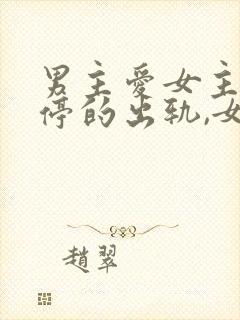 男主爱女主
停的出轨,女
趙翠